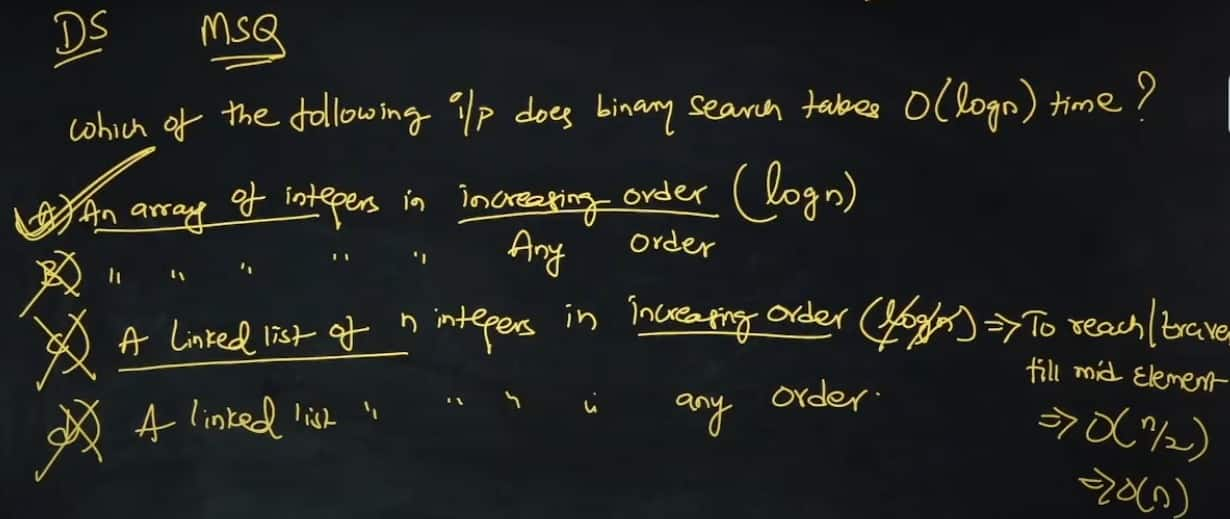 DS MSQ
Which of the following i/p does binary search takes O(logn) time?
A) An array of integers in increasing order (logn)
B) " " " " " Any order
C) A Linked list of n integers in increasing order (logn) => To reach/trave
till mid element
d) A linked list " " " " any order.
=> O(n/2)
=> O(n)